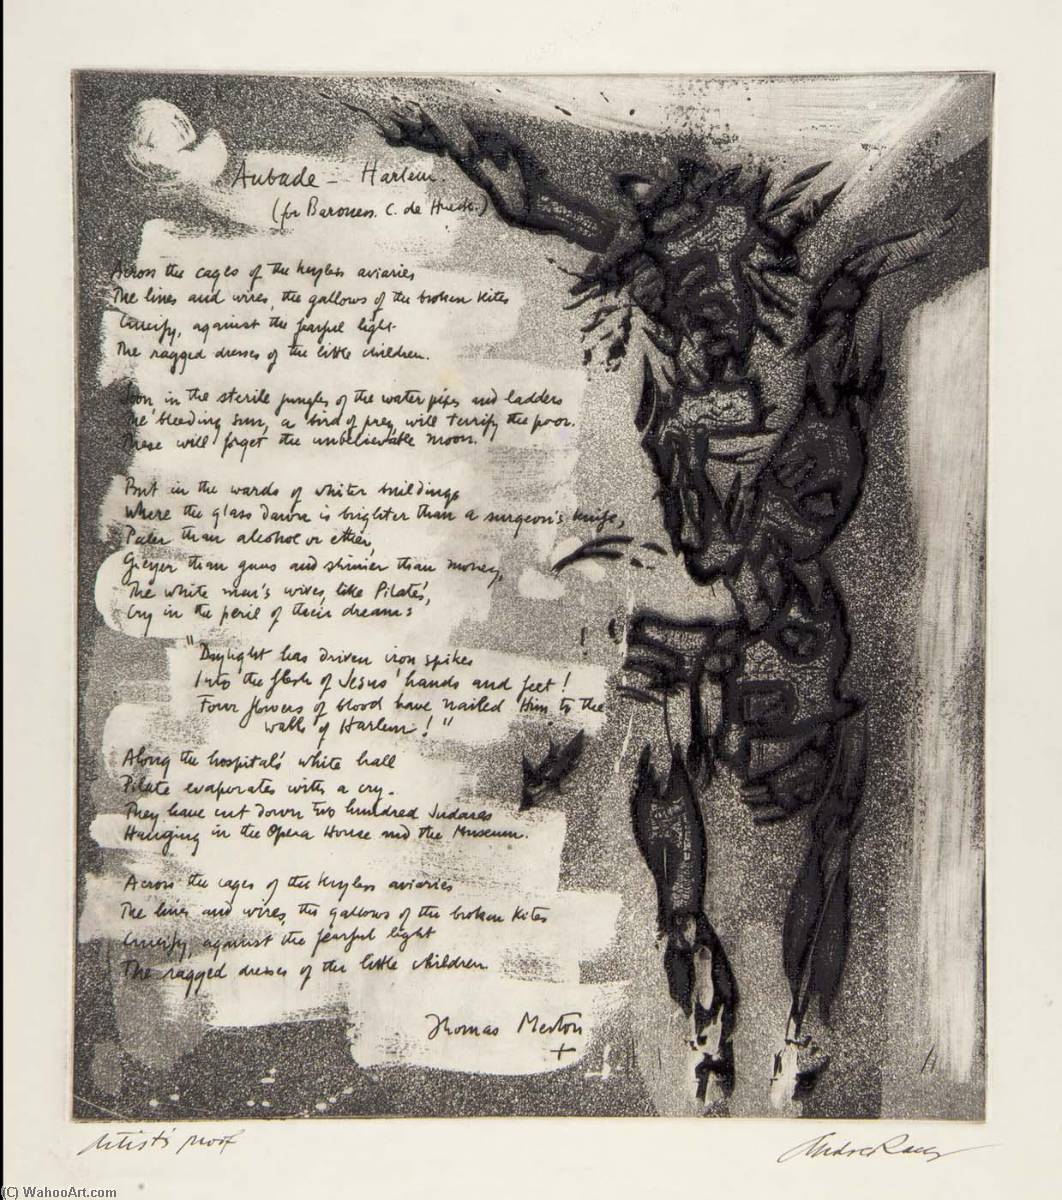 Aubade – Harlem.
(for Baroness. C. de Hueck.)
Across the cages of the keyless aviaries
The lines and wires, the gallows of the broken kites
Crucify, against the fearful light
The ragged dresses of the little children.
Soon in the sterile jungles of the waterpipes and ladders
The bleeding sun, a bird of prey, will terrify the poor.
These will forget the unbelievable moon.
But in the wards of whiter buildings
Where the glass dawn is brighter than a surgeon's knife,
Paler than alcohol or ether,
Greyer than guns and shinier than money,
The white men's wives, like Pilate's,
Cry in the peril of their dreams:
"Daylight has driven iron spikes
Into the flesh of Jesus' hands and feet!
Four flowers of blood have nailed Him to the
walls of Harlem!"
Along the hospital's white hall
Pilate evaporates with a cry.
They have cut down two hundred Judases
Hanging in the Opera House and the Museum.
Across the cages of the keyless aviaries
The lines and wires, the gallows of the broken kites
Crucify, against the fearful light
The ragged dresses of the little children.
Thomas Merton
+
Artist's proof
Andre Racz
(C) WahooArt.com